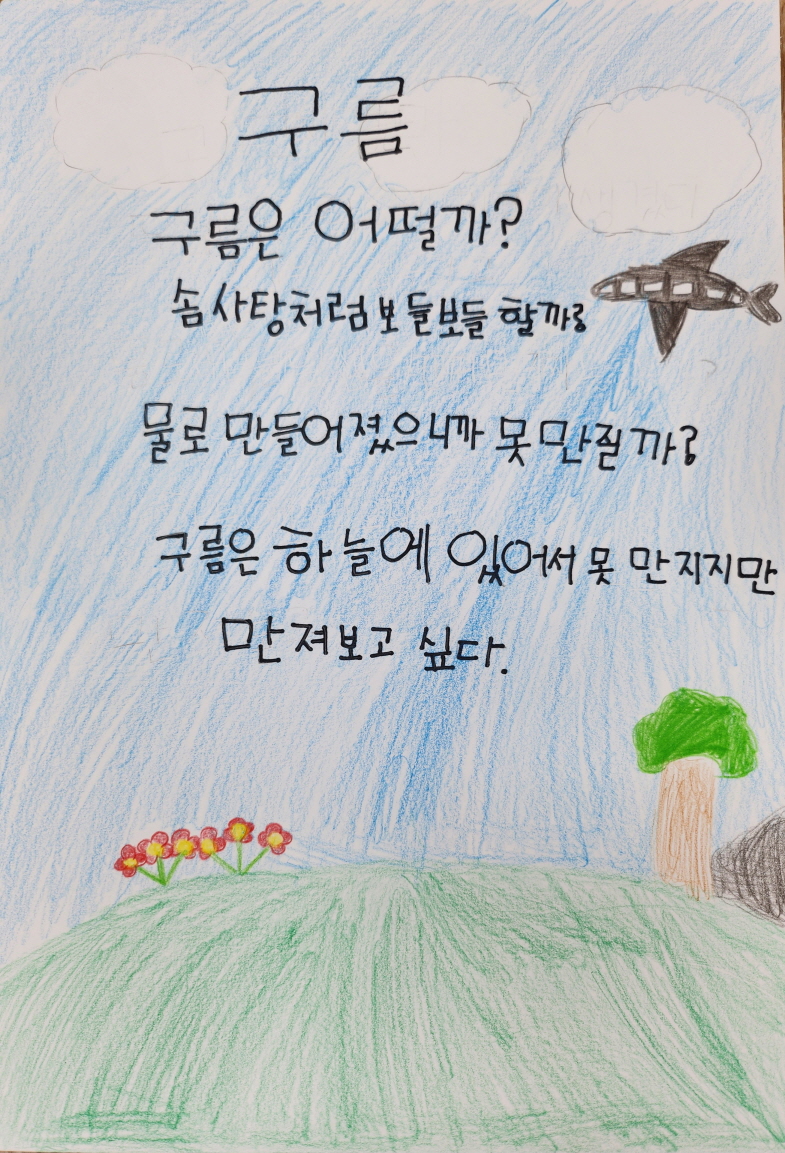 구름
구름은 어떨까?
솜사탕처럼 보들보들 할까?
물로 만들어졌으니까 못 만질까?
구름은 하늘에 있어서 못 만지지만
만져보고 싶다.